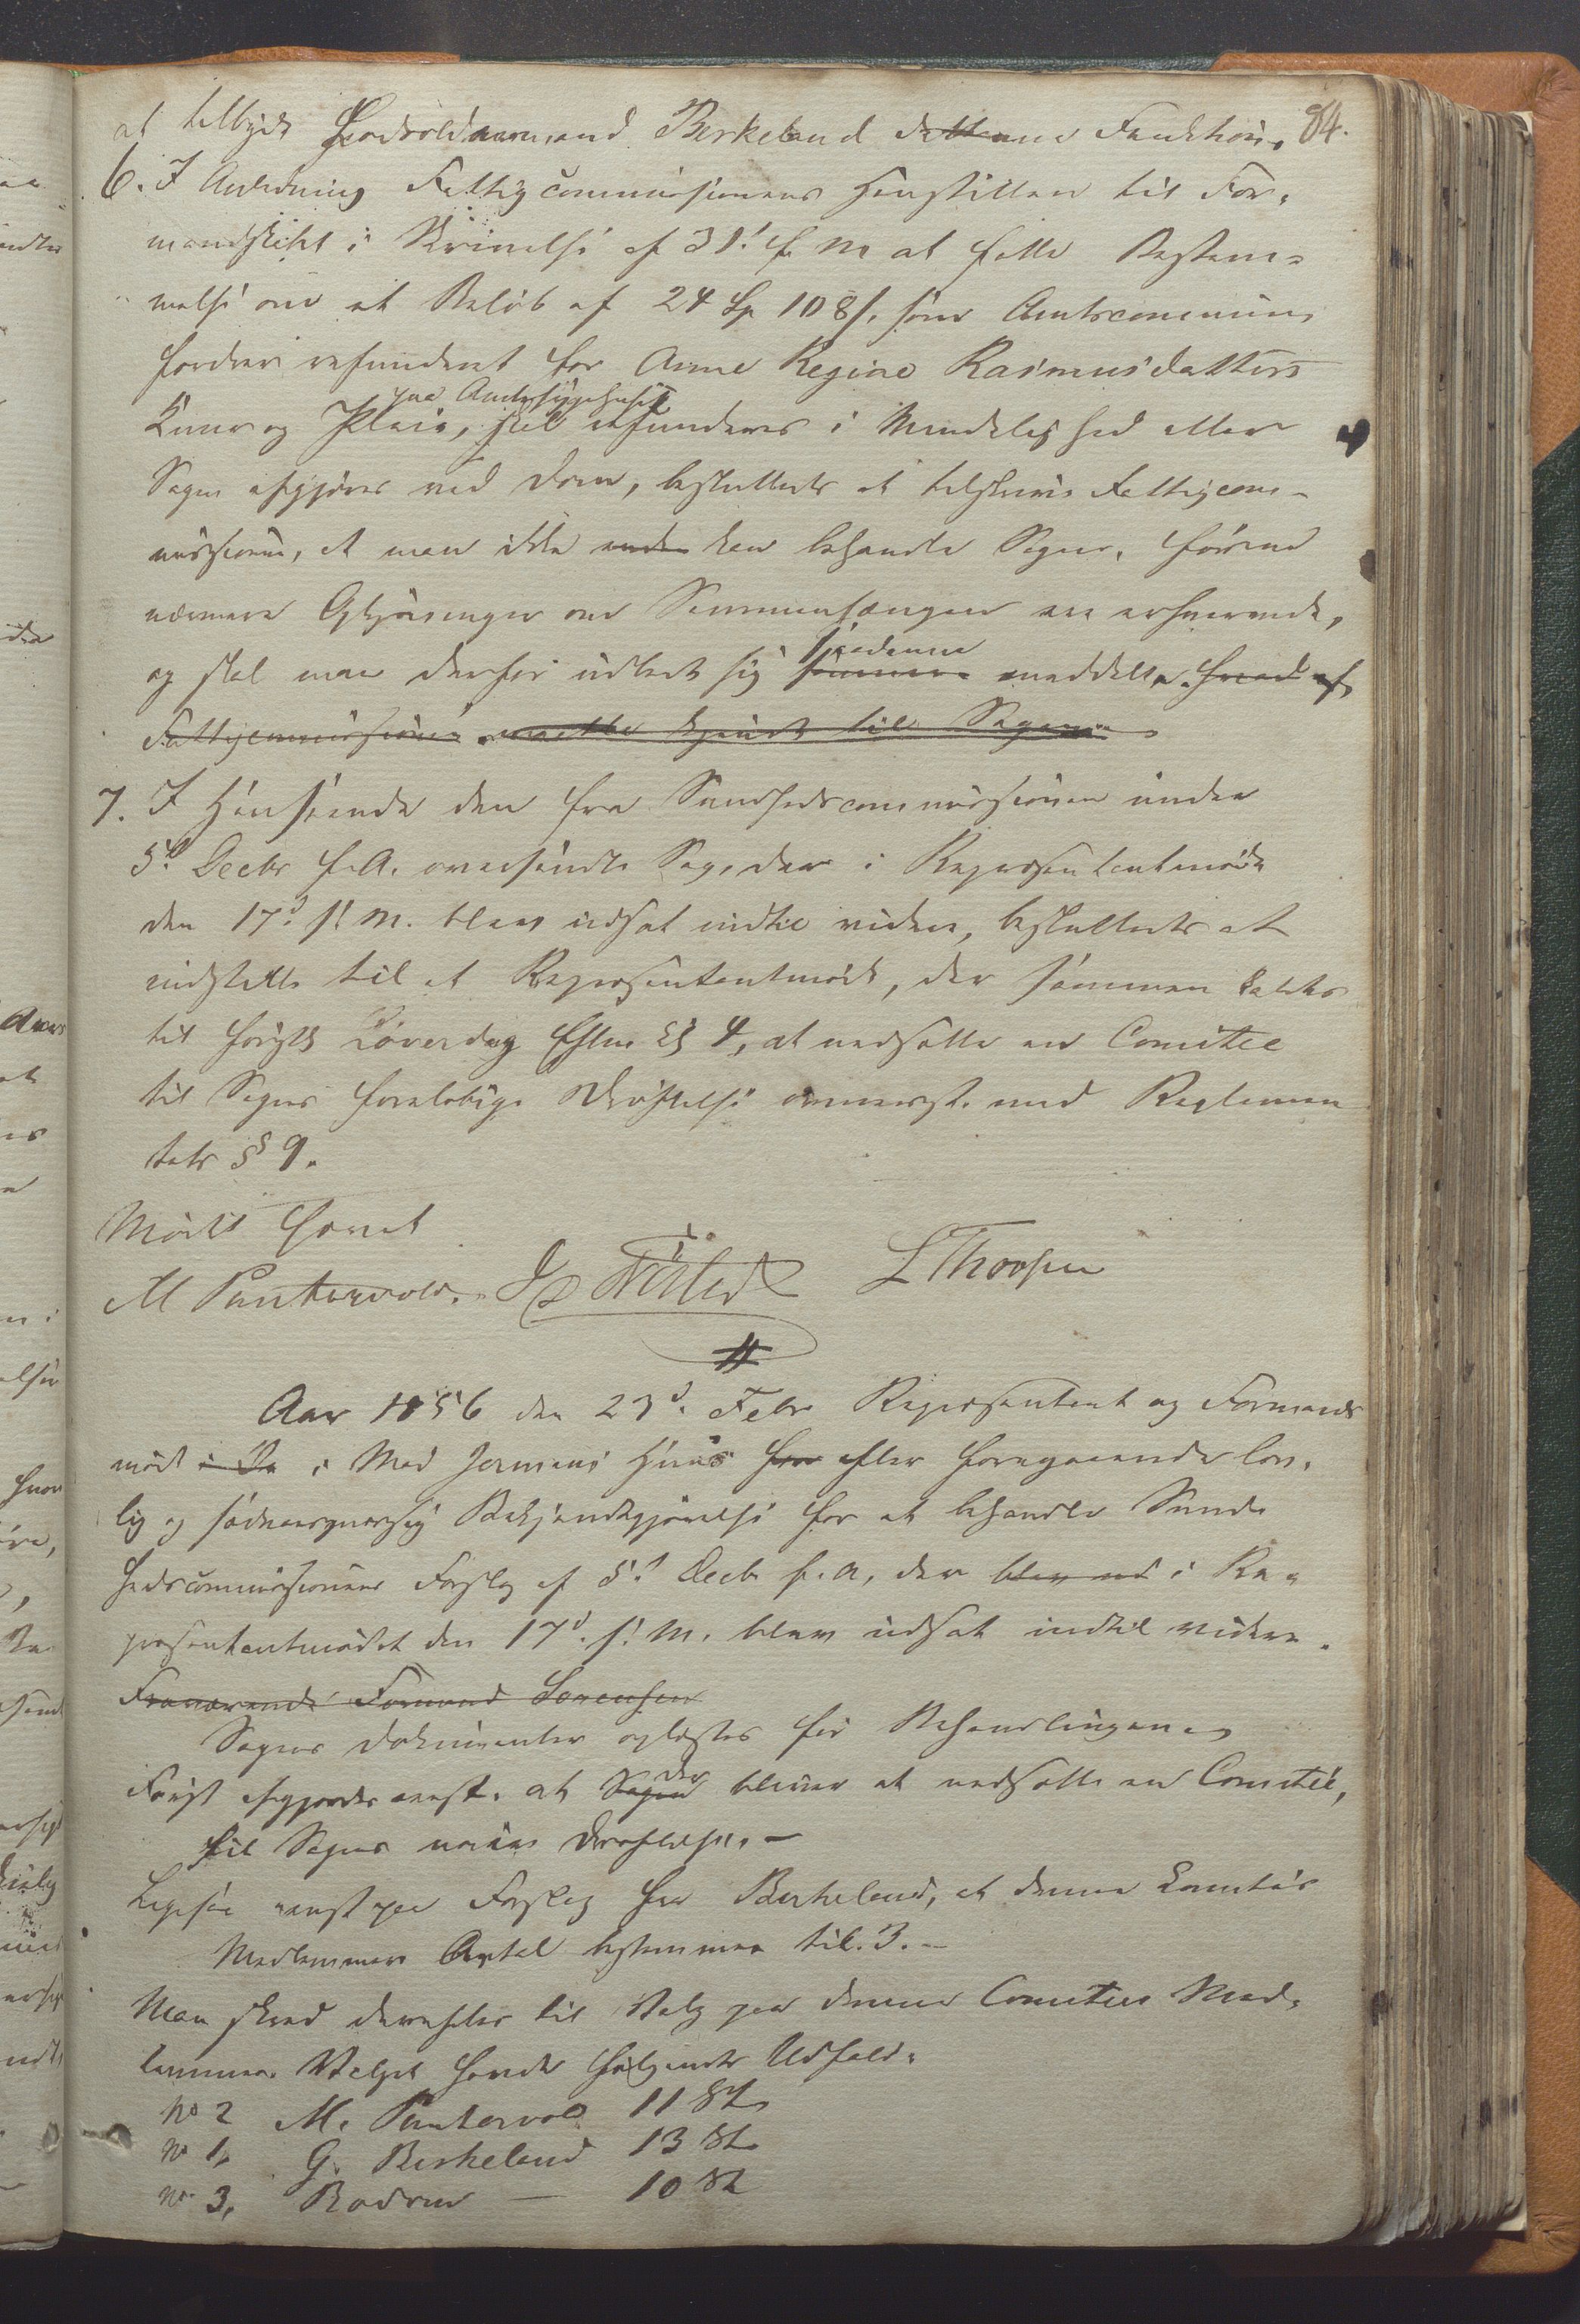 84.
at tilbyde Godvoldmannsmand Berkeland denne Funktion.
6. I Anledning Fattigcommissionens Henstillen til For-
mandskabet i Skrivelse af 31te f. M at fatte Bestem-
melse om et Beløb af 24 Sp 108 s, som Amtscommunen
fordrer refunderet for Anne Regine Rasmusdatters
paa Amtssygehuset
Kuur og Pleie, skal refunderes i Mindelighed eller
Sagen afgjøres ved Dom, besluttedes at tilskrive Fattigcom-
missionen, at man ikke kan behandle Sagen, førend
nærmere Oplysninger om Sammenhængen ere erhvervede,
og skal man derfor udbede sig saadanne meddelte hvad af
Fattigcommissionen maatte kjende til Sagen
7. I Henseende den fra Sundhedscommissionen under
5te Decbr f. A. oversendte Sag, der i Repræsentantmøde
den 17d f. M. blev udsat indtil videre, besluttedes at
indstille til et Repræsentantmøde, der sammenkaldes
til først Løverdag Efterm Kl 4, at nedsætte en Comitee
til Sagens foreløbige Drøftelse overensst. med Reglemen
tets § 9.
Mødet hævet
M Puntervold. L Thorsen
Aar 1856 den 23d Febr Repræsentant og Formands
møde i Mad Jermens Huus efter foregaaende lov-
lig og sædvansmæssig Bekjendtgjørelse for at behandle Sund-
hedscommissionens Forslag af 5te Decbr f. A, der blev ud i Re-
præsentantmødet den 17d f. M. blev udsat indtil videre.
Fraværende Formand Sørensen
Sagens Dokumenter oplæstes før Behandlingen.
Først afgjordes eenst. at der bliver at nedsætte en Comitée,
til Sagens nøiere Drøftelse. -
Ligesaa eenst paa Forslag fra Berkeland, at denne Comitées
Medlemmers Antal bestemmes til 3. -
Man skred derefter til Valg paa denne Comitees Med-
lemmer. Valget havde følgende Udfald.
No 2 M. Puntervold 11 St
No 1, G. Berkeland 13 St
No 3, Rodvm — 10 St